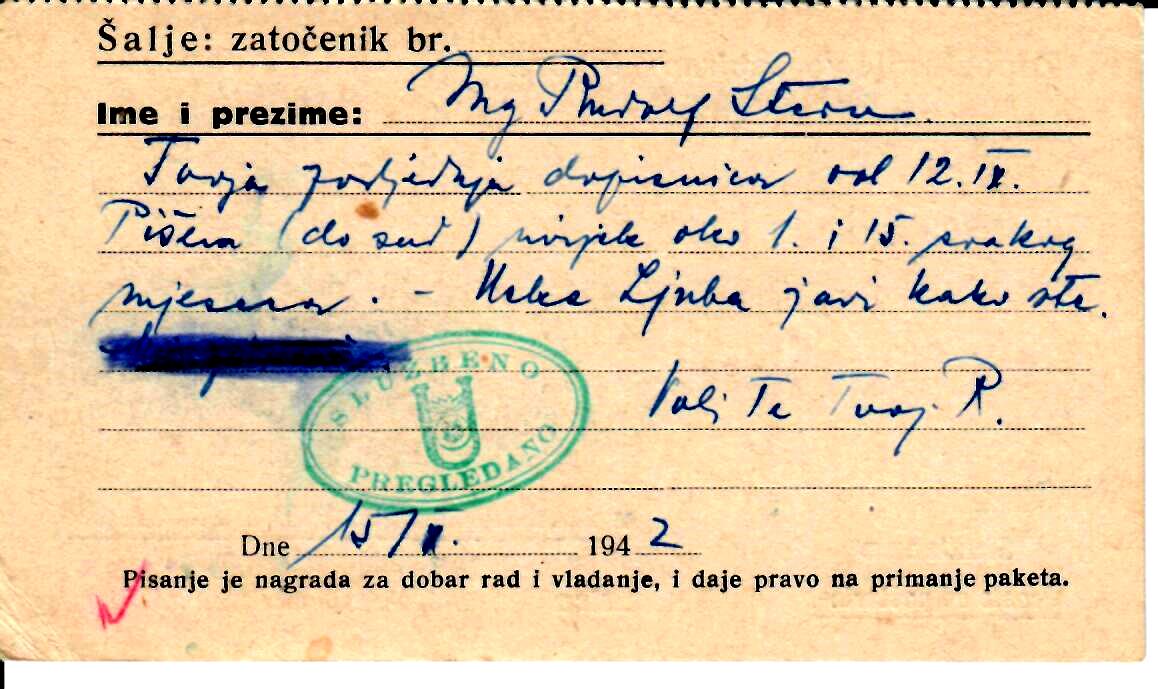 Šalje: zatočenik br.
Ime i prezime: Mg Rudolf Stern
Tvoja posljednja dopisnica od 12. IX.
Pišem (do sad) uvijek oko 1. i 15. svakog
mjeseca. - Neka Ljuba javi kako ste.
SLUŽBENO
PREGLEDANO
Voli Te Tvoj R.
Dne 15/X. 1942
Pisanje je nagrada za dobar rad i vladanje, i daje pravo na primanje paketa.